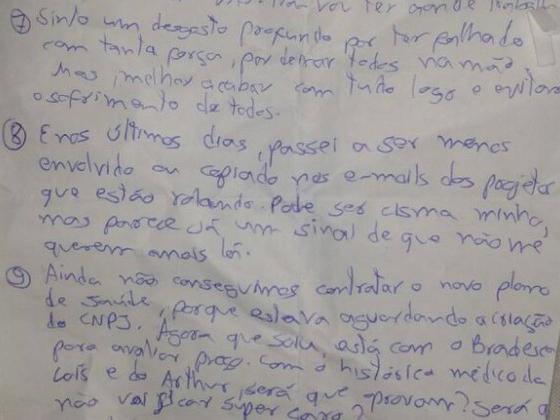 vou ter aonde trabalh
⑦ Sinto um desgosto profundo por ter falhado
com tanta força, por deixar todos na mão.
Mas, melhor acabar com tudo logo e evitar
o sofrimento de todos.
⑧ E nos últimos dias, passei a ser menos
envolvido ou copiado nos e-mails dos projetos
que estão rolando. Pode ser cisma minha,
mas parece já um sinal de que não me
querem mais lá.
⑨ Ainda não conseguimos contratar o novo plano
de saúde, porque estava aguardando a criação
do CNPJ. Agora que saiu, está com o Bradesco
para avaliar preço. Com o histórico médico da
Laís e do Arthur, será que aprovam? Será q
não vai ficar super caro?